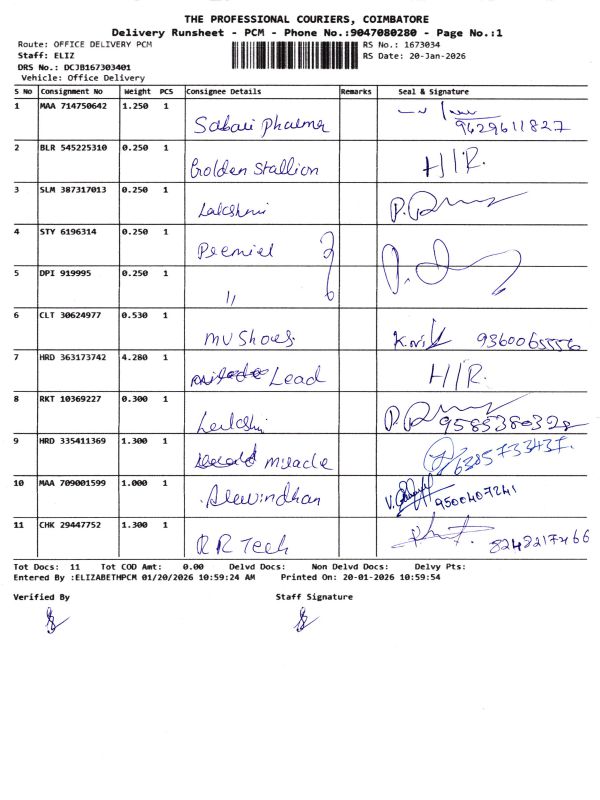 THE PROFESSIONAL COURIERS, COIMBATORE
Delivery Runsheet - PCM - Phone No.:9047080280 - Page No.:1
Route: OFFICE DELIVERY PCM
RS No.: 1673034
Staff: ELIZ
RS Date: 20-Jan-2026
DRS No.: DCJB167303401
Vehicle: Office Delivery
S No Consignment No Weight PCS Consignee Details Remarks Seal & Signature
1 MAA 714750642 1.250 1 Sabari Pharmer 9629611827
2 BLR 545225310 0.250 1 Golden Stallion H/R.
3 SLM 387317013 0.250 1 Lakshmi
4 STY 6196314 0.250 1 Premiel
5 DPI 919995 0.250 1 11
6 CLT 30624977 0.530 1 MV Shoes. 9360065556
7 HRD 363173742 4.280 1 Lead H/R.
8 RKT 10369227 0.300 1 9585380328
9 HRD 335411369 1.300 1 Miracle 6385733437.
10 MAA 709001599 1.000 1 Aravindhan 9500407241
11 CHK 29447752 1.300 1 RR Tech 8248217466
Tot Docs: 11 Tot COD Amt: 0.00 Delvd Docs: Non Delvd Docs: Delvy Pts:
Entered By :ELIZABETHPCM 01/20/2026 10:59:24 AM Printed On: 20-01-2026 10:59:54
Verified By Staff Signature